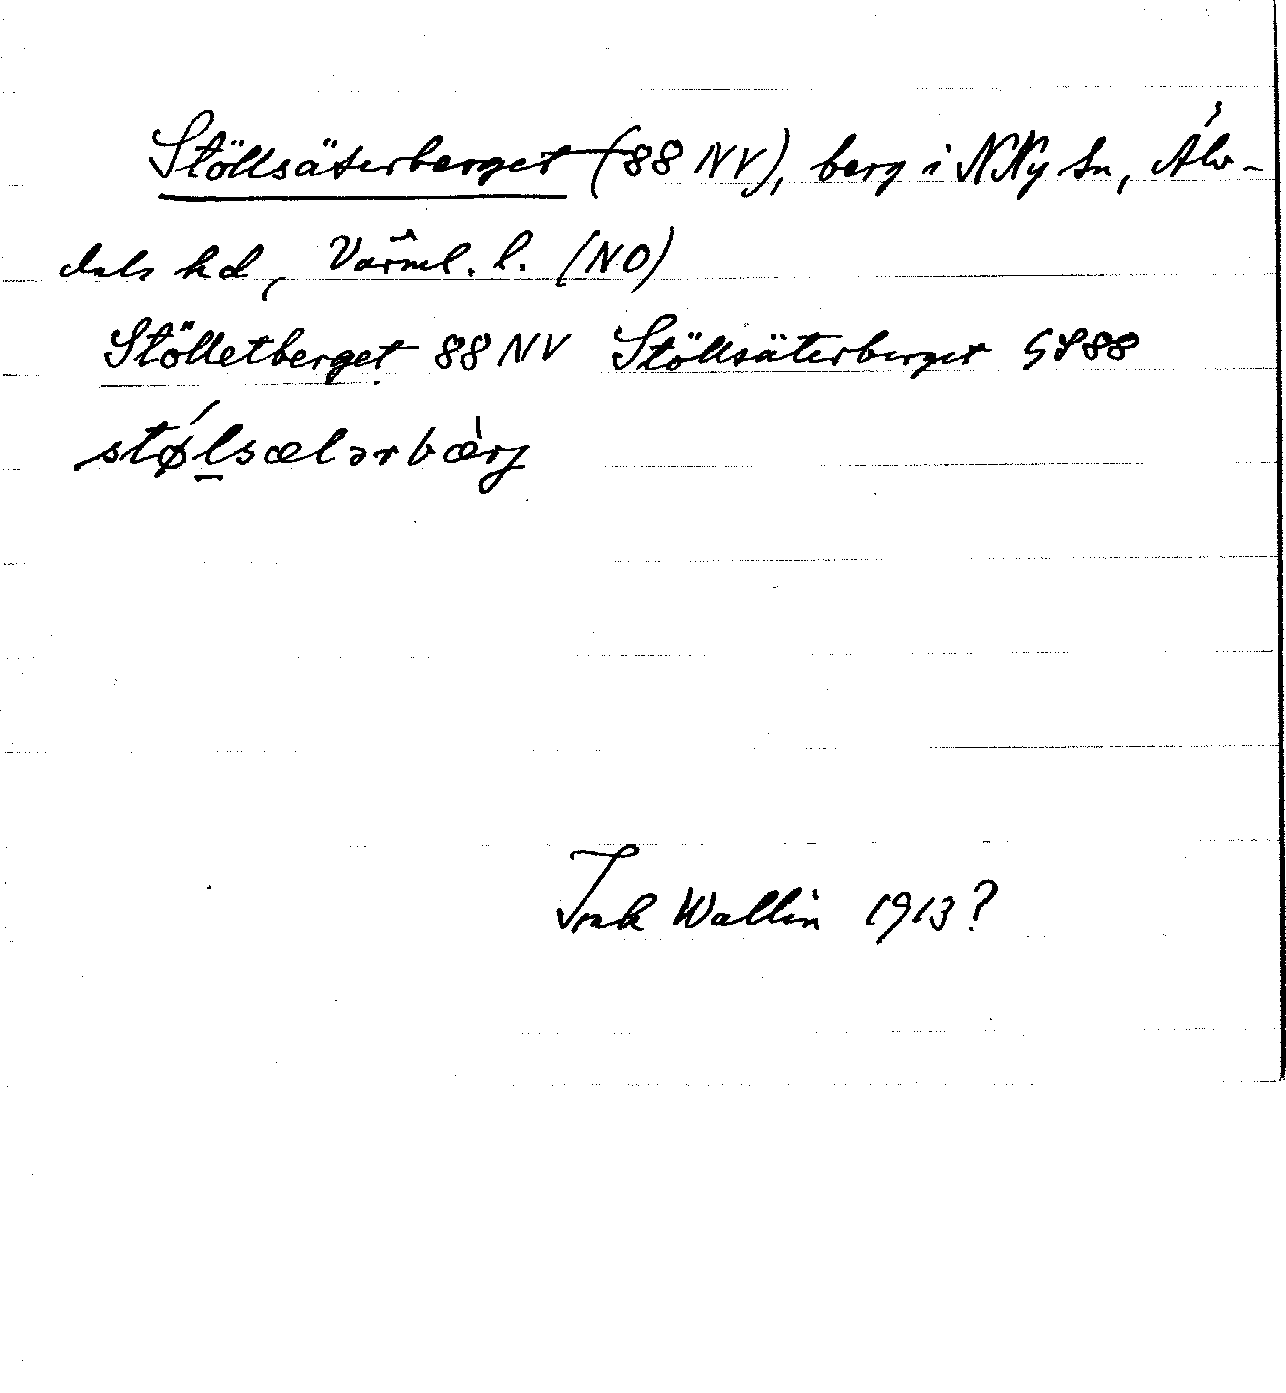 Stöllsäterberget (88 NV), berg i N Ny sn, Älv-
dals hd, Värml. l. (NO)
Stölletberget 88 NV Stöllsäterberget GS88
stǿlsælərbæ̀rj
Wallin 1913?